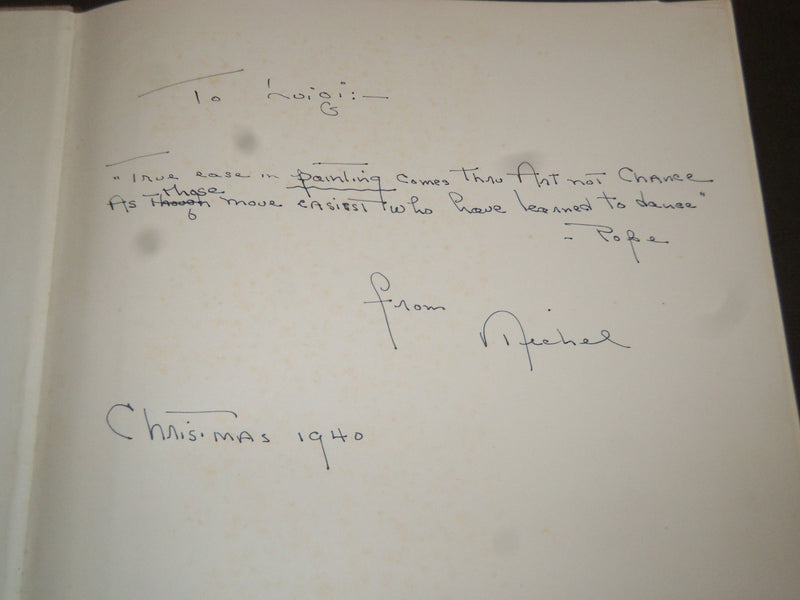 To Luigi:—
"True ease in painting comes Thru Art not Chance
those
As Though move easiest who have learned to dance"
- Pope
from
Michel
Christmas 1940